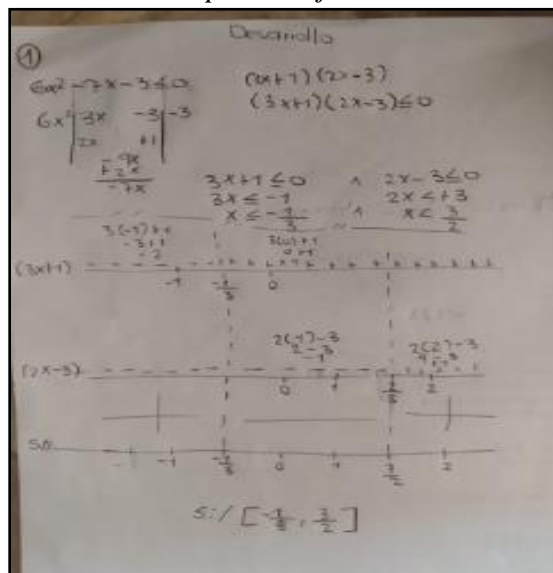 Desarrollo
①
6x² - 7x - 3 ≤ 0
(3x+1)(2x-3) ≤ 0
6x² | 3x -3 | -3
2x +1
-9x
+2x
-7x
3x+1 ≤ 0 ∧ 2x-3 ≤ 0
3x ≤ -1 2x ≤ +3
x ≤ -1/3 ∧ x ≤ 3/2
3(-1)+1 3(0)+1
-3+1 0+1
-2
(3x+1)
-1 -1/3 0
2(1)-3 2(2)-3
2-3 4-3
-1
(2x-3)
0 1 2
-1 -1/3 0 1 3/2 2
S:/ [-1/3, 3/2]